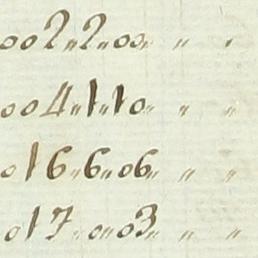 002〃2〃00〃 〃 〃
004〃1〃10〃 〃 〃
016〃6〃06〃 〃 〃
017〃0〃03〃 〃 〃